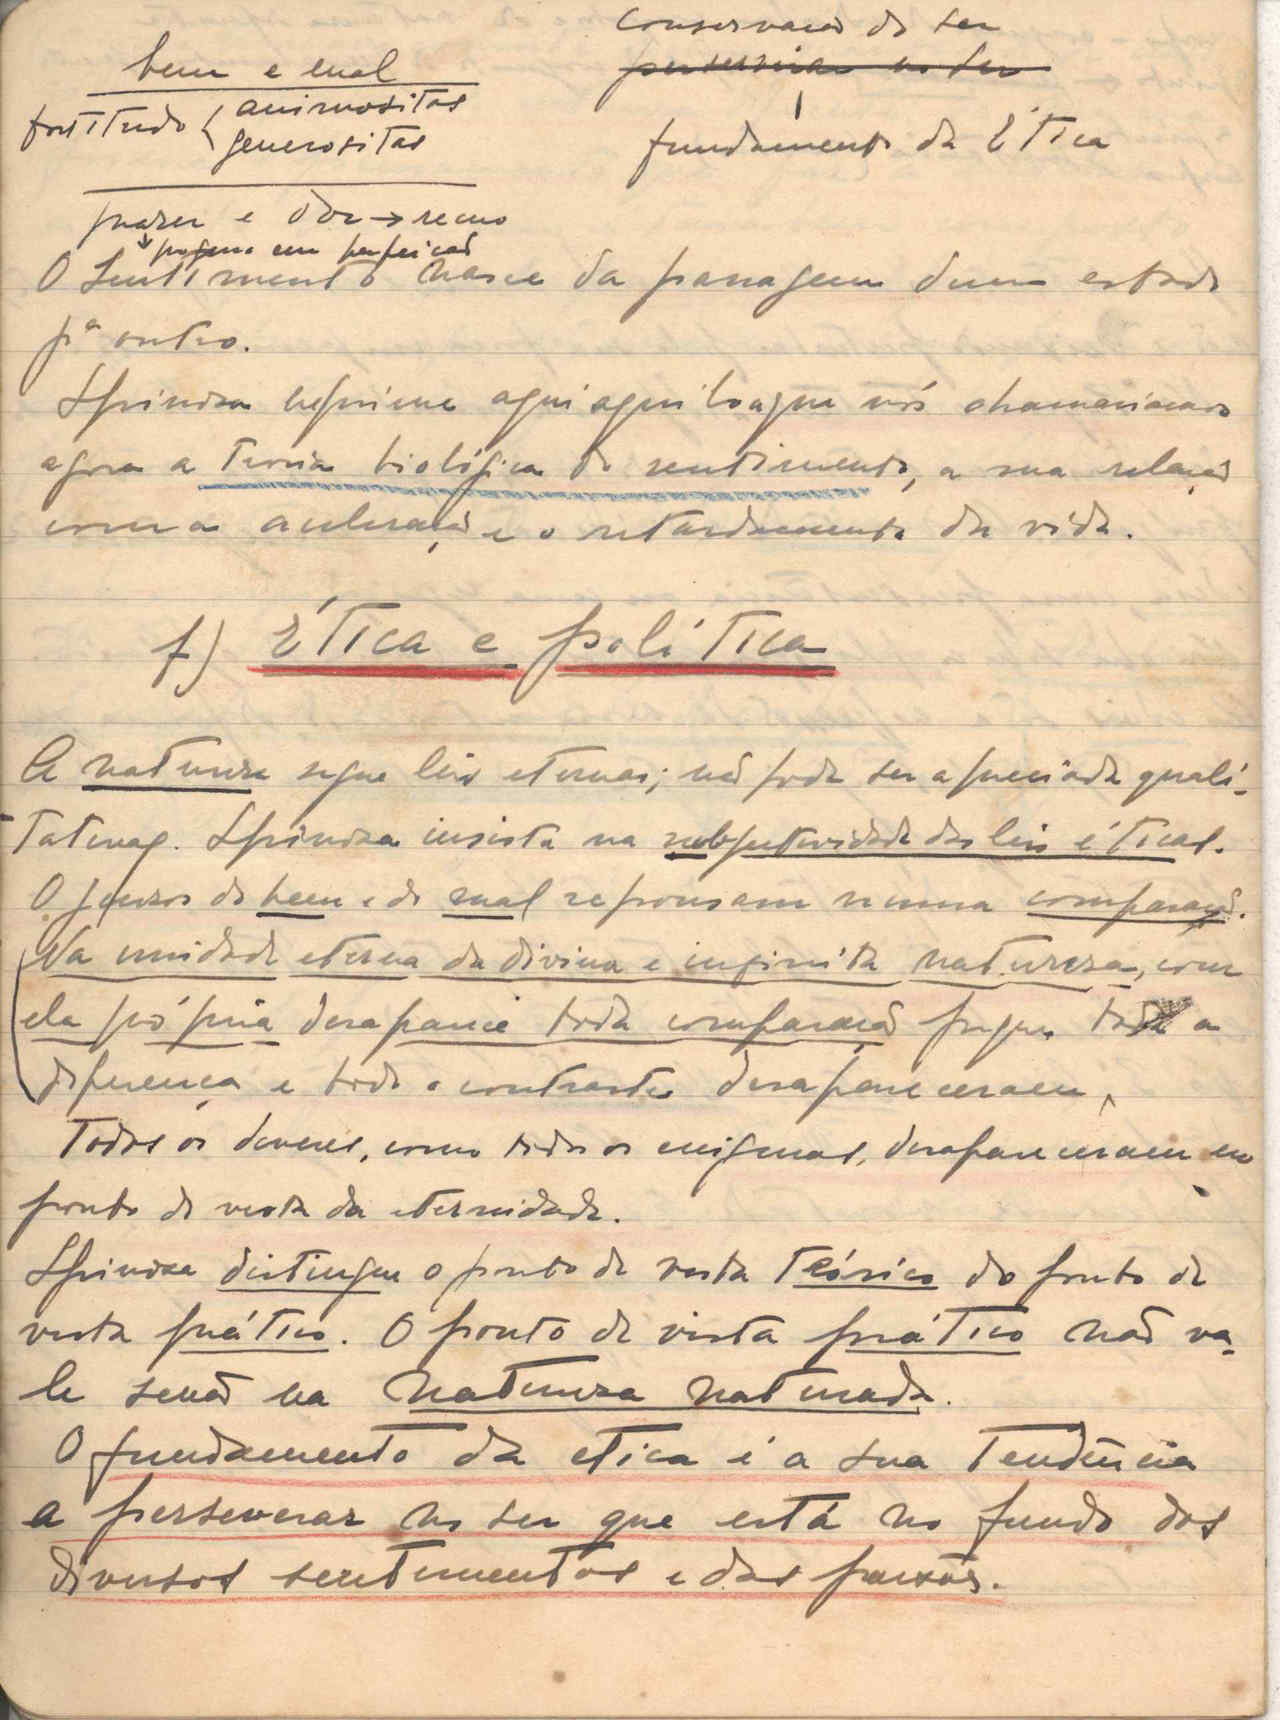 bem e mal
fortitudo { animositas
generositas
Conservação do ser
perseverar no ser
fundamento da Ética
prazer e dor → recuo
↓ progresso em perfeição
O sentimento nasce da passagem dum estado
pª outro.
Spinosa exprime aqui aquilo a que nós chamaríamos
agora a teoria biológica do sentimento, a sua relação
com a aceleração e o retardamento da vida.
f) Ética e política
A natureza segue leis eternas; não pode ser apreciada quali-
tativas. Spinosa insista na subjectividade das leis éticas.
O juizos do bem e do mal repousam numa comparação.
Na unidade eterna da divina e infinita natureza, com
ela própria desaparece toda comparação porque toda a
diferença e todo o contraste desapareceram.
Todos os deveres, como todos os enigmas, desapareceram no
ponto de vista da eternidade.
Spinosa distingue o ponto de vista teórico do ponto de
vista prático. O ponto de vista prático não va-
le senão na natureza naturada.
O fundamento da etica é a sua tendência
a perseverar no ser que está no fundo dos
diversos sentimentos e das paixões.